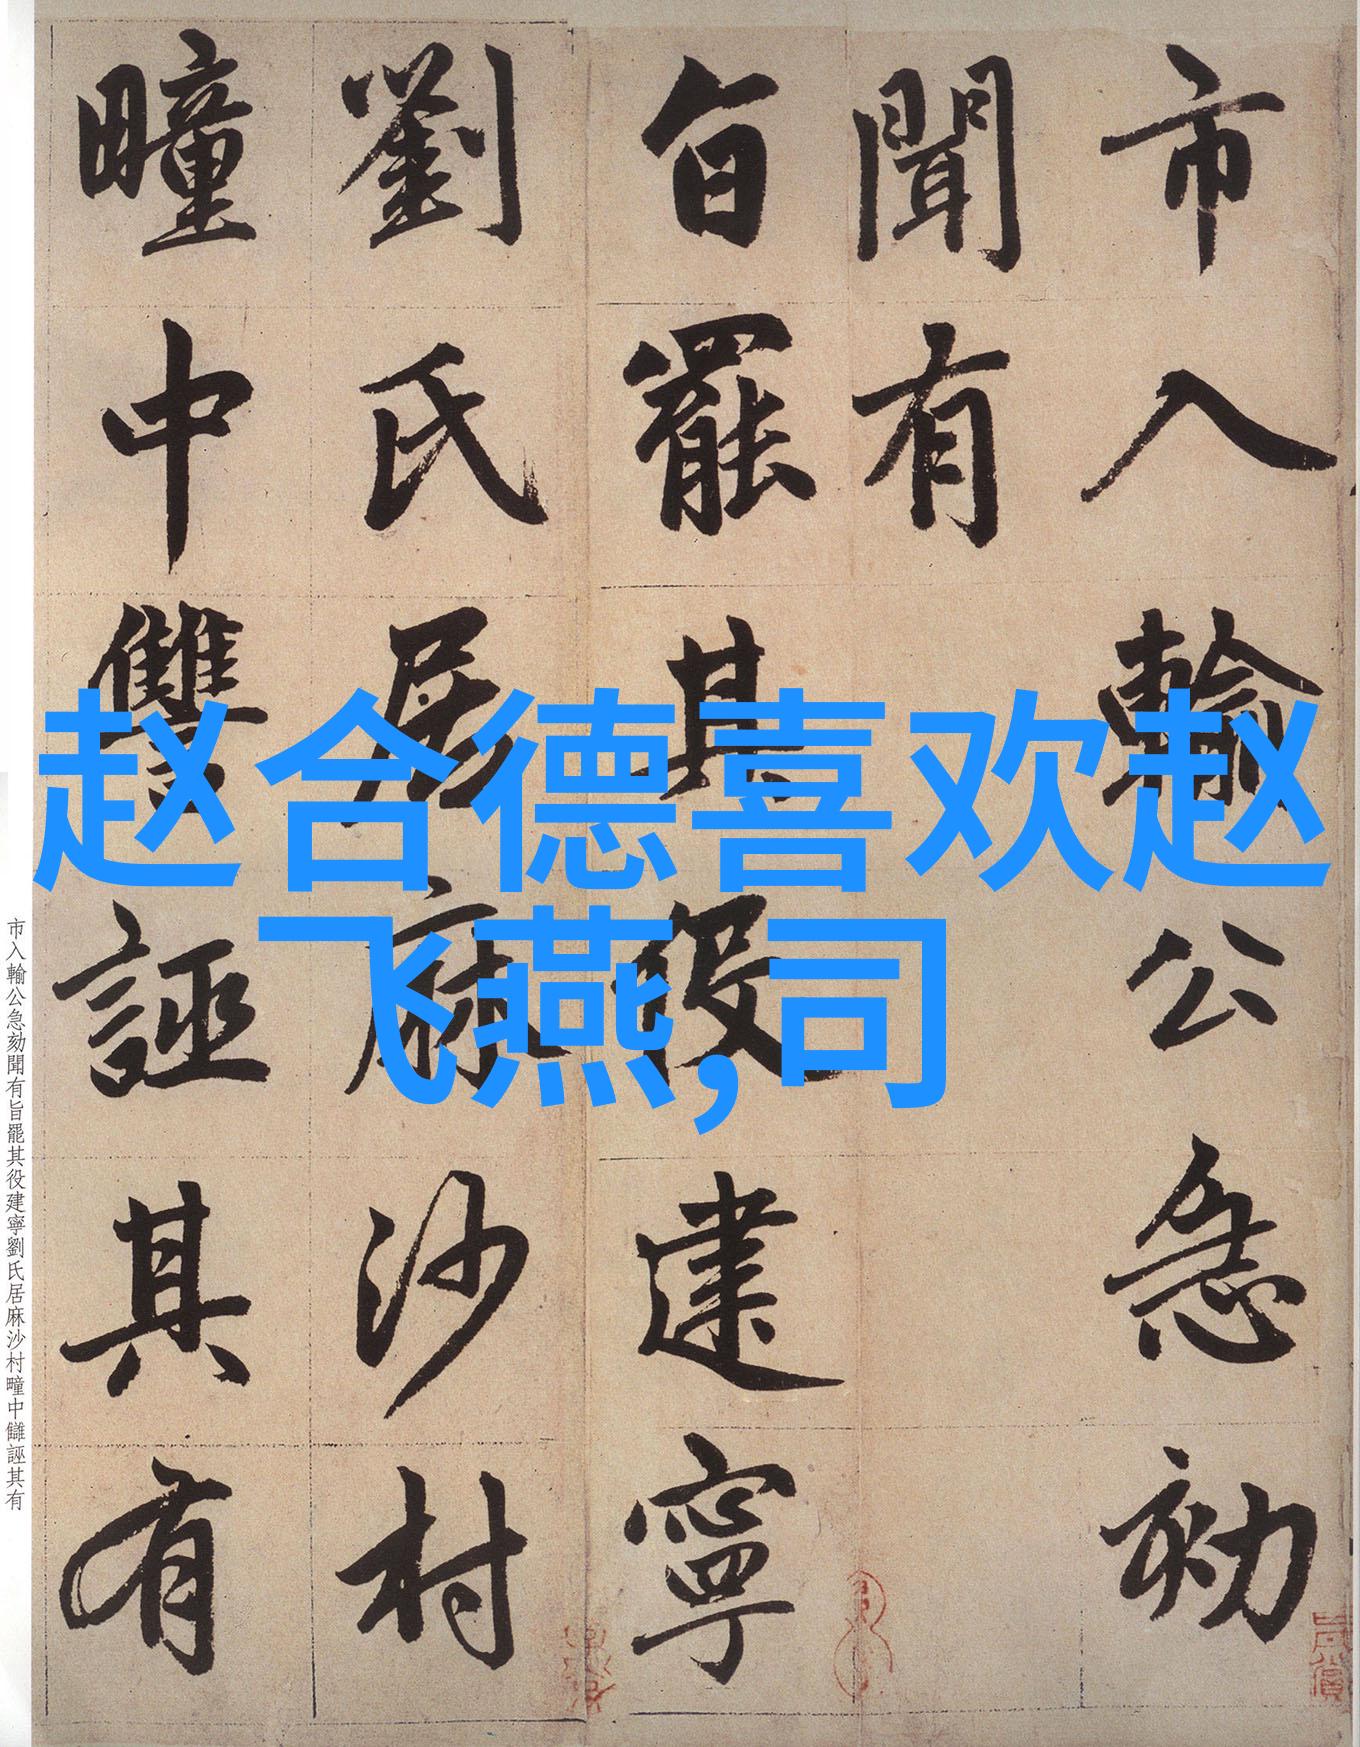 市入輸公急劾
聞有
旨罷其役建寧
劉氏居麻沙村
疃中讐誣其有
赵合德喜欢赵
飞燕,司
市入輸公急劾聞有旨罷其役建寧劉氏居麻沙村疃中讎誣其有